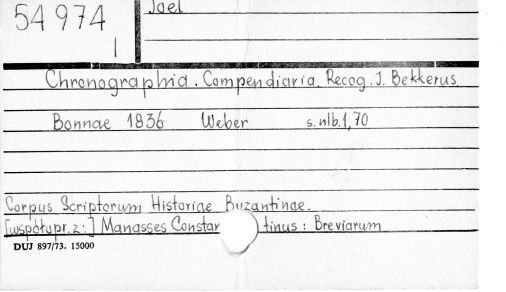 54 974
I
Joel
Chronographia. Compendiaria. Recog. J. Bekkerus
Bonnae 1836 Weber s. nlb. 1, 70
Corpus Scriptorum Historiae Byzantinae.
[współopr. z:] Manasses Constantinus: Breviarum
DUJ 897/73. 15000